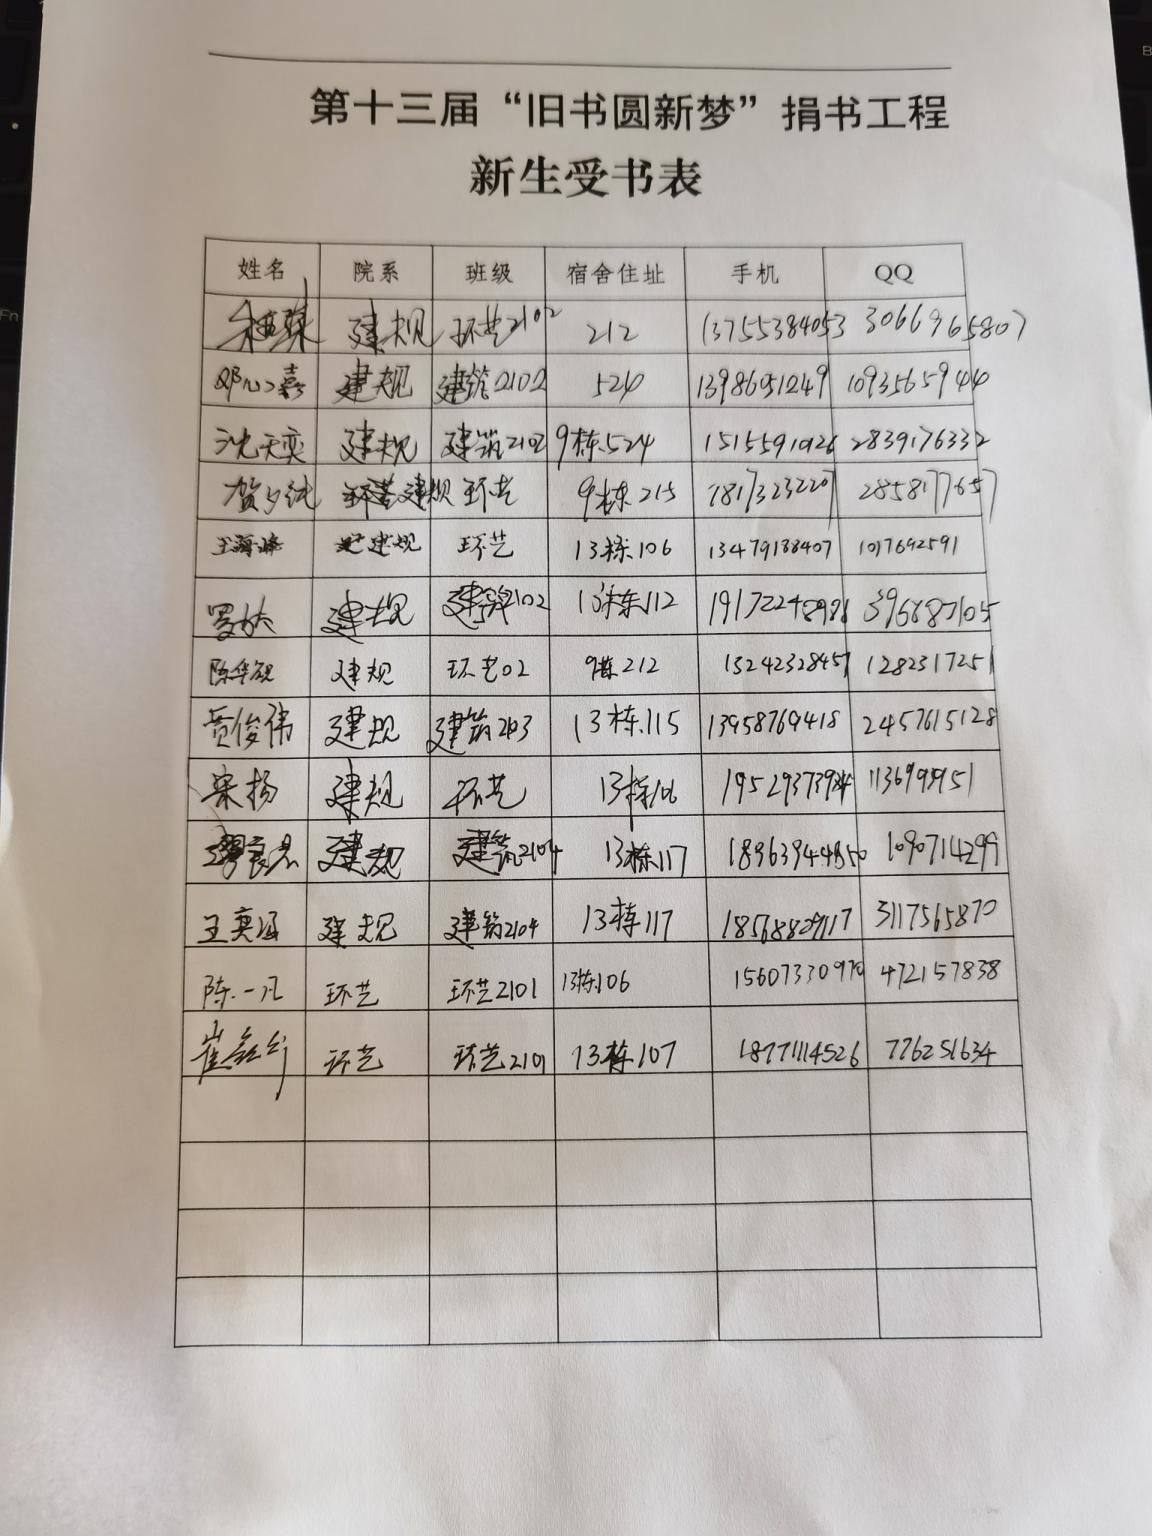 第十三届“旧书圆新梦”捐书工程
新生受书表
姓名 院系 班级 宿舍住址 手机 QQ
建规 环艺2102 212 13755384053 3066965807
邓心嘉 建规 建筑2102 524 13986951249 1093565944
沈天奕 建规 建筑2102 9栋524 2839176332
贺夕纯 建规 环艺 9栋215 18173232207 2858177657
王海峰 建规 环艺 13栋106 13479138407 1017692591
罗 建规 建筑2102 13栋112 396887105
陈华砚 建规 环艺02 9栋212 13242328457 1282317251
贾俊伟 建规 建筑2103 13栋115 13958769418 2457615128
宋扬 建规 环艺 13栋106
建规 建筑2104 13栋117 18963944850 1090714299
王奕涵 建规 建筑2104 13栋117 18568829117 3117565870
陈一凡 环艺 环艺2101 13栋106 15607330970 472157838
崔 环艺 环艺2101 13栋107 18771114526 776251634